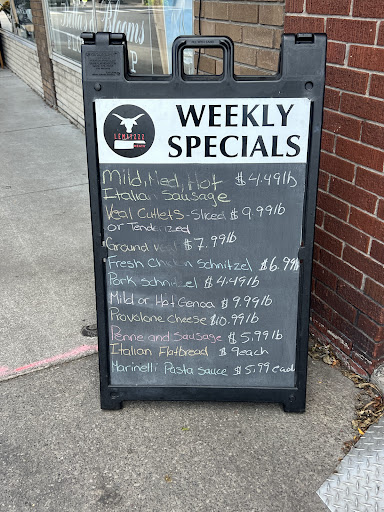 WEEKLY
SPECIALS
Mild, Med, Hot $4.49lb
Italian Sausage
Veal Cutlets-Sliced $9.99lb
or Tenderized
Ground Veal $7.99lb
Fresh Chicken Schnitzel $6.99lb
Pork Schnitzel $4.49lb
Mild or Hot Genoa $9.99lb
Provolone Cheese $10.99lb
Penne and Sausage $5.99lb
Italian Flatbread $9each
Marinelli Pasta Sauce $5.99 each